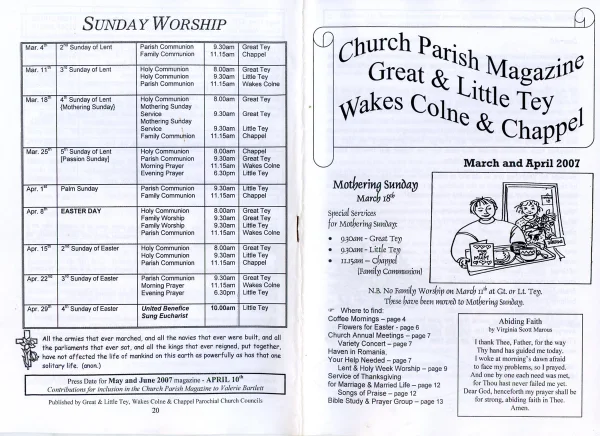 SUNDAY WORSHIP
Mar. 4th 2nd Sunday of Lent Parish Communion 9.30am Great Tey
Family Communion 11.15am Chappel
Mar. 11th 3rd Sunday of Lent Holy Communion 8.00am Great Tey
Holy Communion 9.30am Little Tey
Parish Communion 11.15am Wakes Colne
Mar. 18th 4th Sunday of Lent Holy Communion 8.00am Great Tey
{Mothering Sunday} Mothering Sunday
Service 9.30am Great Tey
Mothering Sunday
Service 9.30am Little Tey
Family Communion 11.15am Chappel
Mar. 25th 5th Sunday of Lent Holy Communion 8.00am Chappel
[Passion Sunday] Parish Communion 9.30am Great Tey
Morning Prayer 11.15am Wakes Colne
Evening Prayer 6.30pm Little Tey
Apr. 1st Palm Sunday Parish Communion 9.30am Little Tey
Family Communion 11.15am Chappel
Apr. 8th EASTER DAY Holy Communion 8.00am Great Tey
Family Worship 9.30am Great Tey
Family Worship 9.30am Little Tey
Parish Communion 11.15am Wakes Colne
Apr. 15th 2nd Sunday of Easter Holy Communion 8.00am Great Tey
Holy Communion 9.30am Little Tey
Parish Communion 11.15am Chappel
Apr. 22nd 3rd Sunday of Easter Parish Communion 9.30am Great Tey
Morning Prayer 11.15am Wakes Colne
Evening Prayer 6.30pm Little Tey
Apr. 29th 4th Sunday of Easter United Benefice 10.00am Little Tey
Sung Eucharist
All the armies that ever marched, and all the navies that ever were built, and all
the parliaments that ever sat, and all the kings that ever reigned, put together,
have not affected the life of mankind on this earth as powerfully as has that one
solitary life. (anon.)
Press Date for May and June 2007 magazine - APRIL 10th
Contributions for inclusion in the Church Parish Magazine to Valerie Bartlett
Published by Great & Little Tey, Wakes Colne & Chappel Parochial Church Councils
20
Church Parish Magazine
Great & Little Tey
Wakes Colne & Chappel
March and April 2007
Mothering Sunday
March 18th
Special Services
for Mothering Sunday:
• 9.30am - Great Tey
• 9.30am - Little Tey
• 11.15am – Chappel
[Family Communion]
N.B. No Family Worship on March 11th at Gt. or Lt. Tey.
These have been moved to Mothering Sunday.
☞ Where to find:
Coffee Mornings – page 4
Flowers for Easter - page 6
Church Annual Meetings – page 7
Variety Concert – page 7
Haven in Romania.
Your Help Needed – page 7
Lent & Holy Week Worship – page 9
Service of Thanksgiving
for Marriage & Married Life – page 12
Songs of Praise – page 12
Bible Study & Prayer Group – page 13
Abiding Faith
by Virginia Scott Marcus
I thank Thee, Father, for the way
Thy hand has guided me today.
I woke at morning's dawn afraid
to face my problems, so I prayed.
And one by one each need was met,
for Thou hast never failed me yet.
Dear God, henceforth my prayer shall be
for strong, abiding faith in Thee.
Amen.